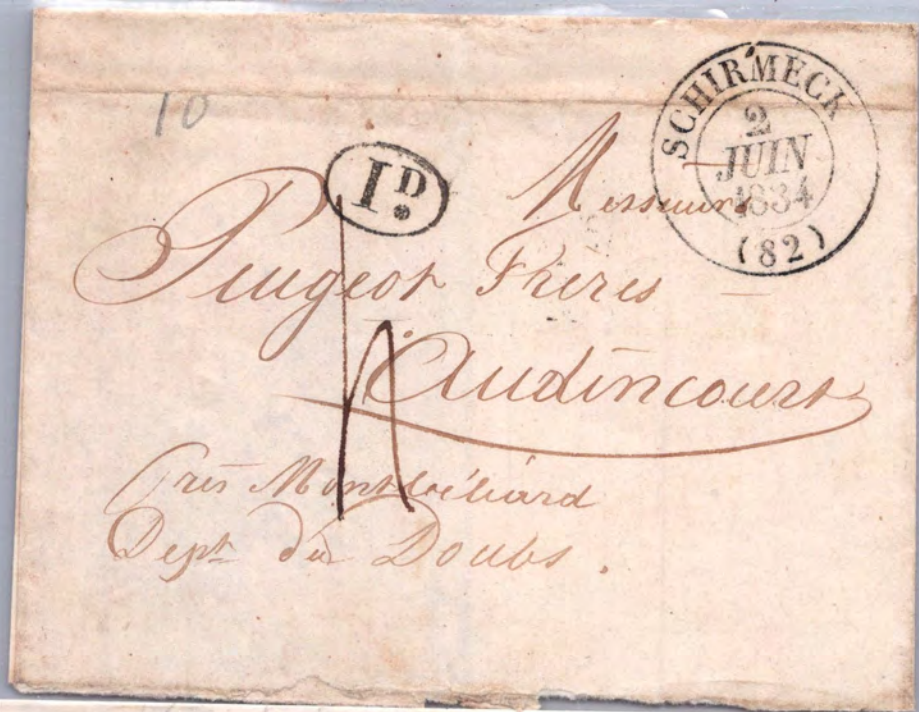 10
1D
SCHIRMECK
2
JUIN
1834
(82)
Messieurs
Peugeot Frères
Audincourt
Près Montbéliard
Dept du Doubs.